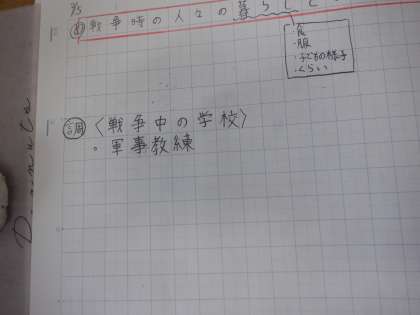 戦争時の人々の暮らしと
・食
・服
・子どもの様子
・くらい
調〈戦争中の学校〉
・軍事教練